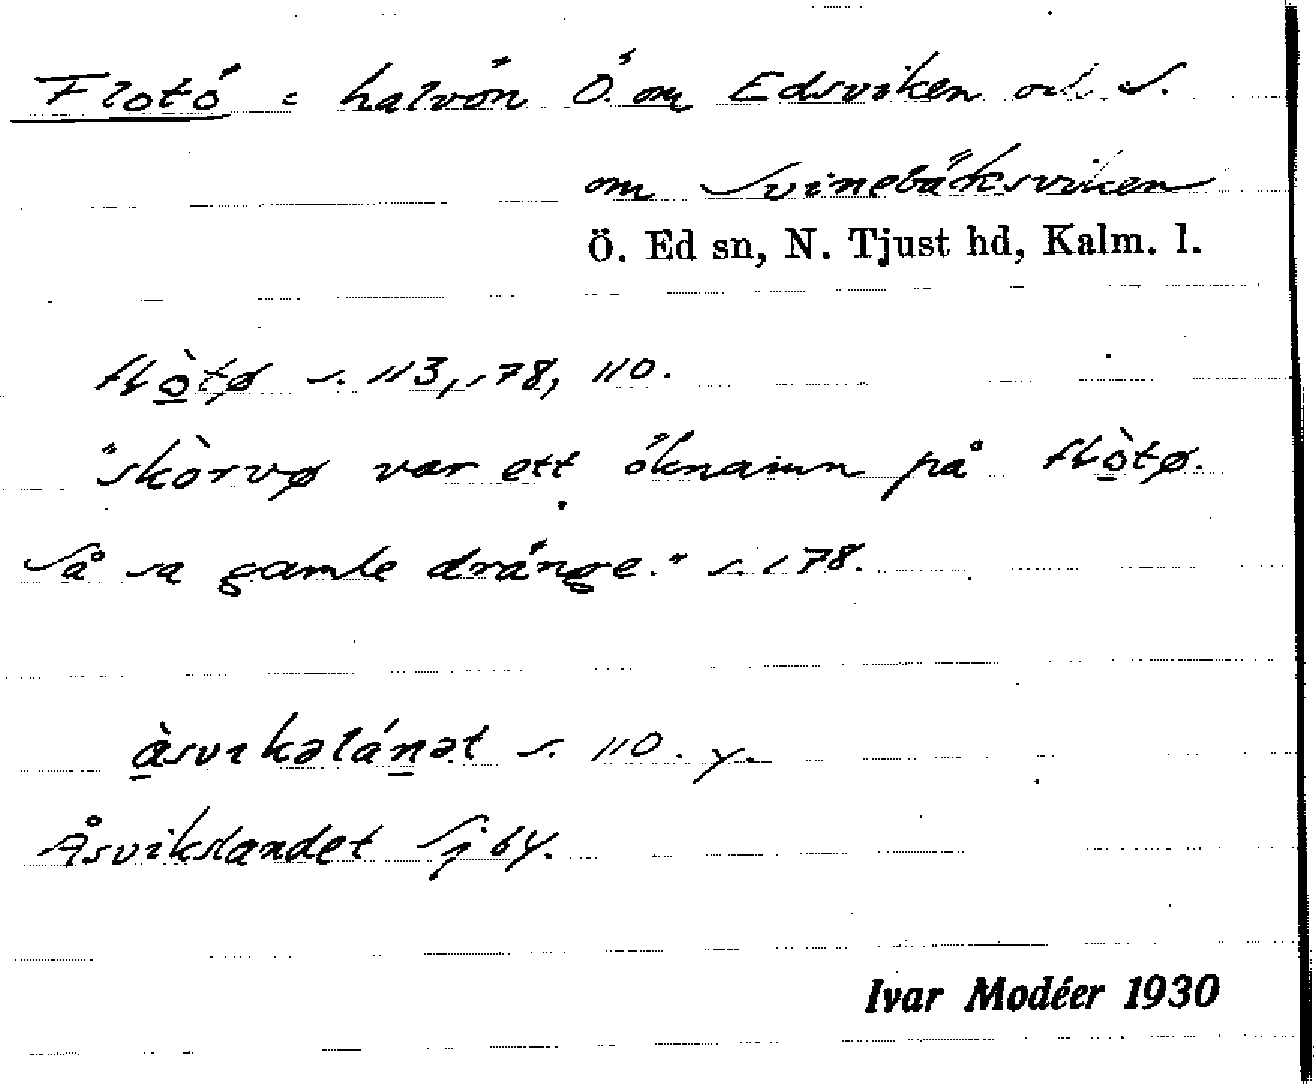 Flotö = halvön Ö. om Edsviken och S.
om Svinebäcksviken
Ö. Ed sn, N. Tjust hd, Kalm. l.
flò̱tø s. 113, s 78, 110.
"skòrvø var ett öknamn på flò̱tø.
Så sa gamle dränge." s. s 78.
à̱svikəláṉət s. 110. y.
Åsvikslandet Sj 64.
Ivar Modéer 1930